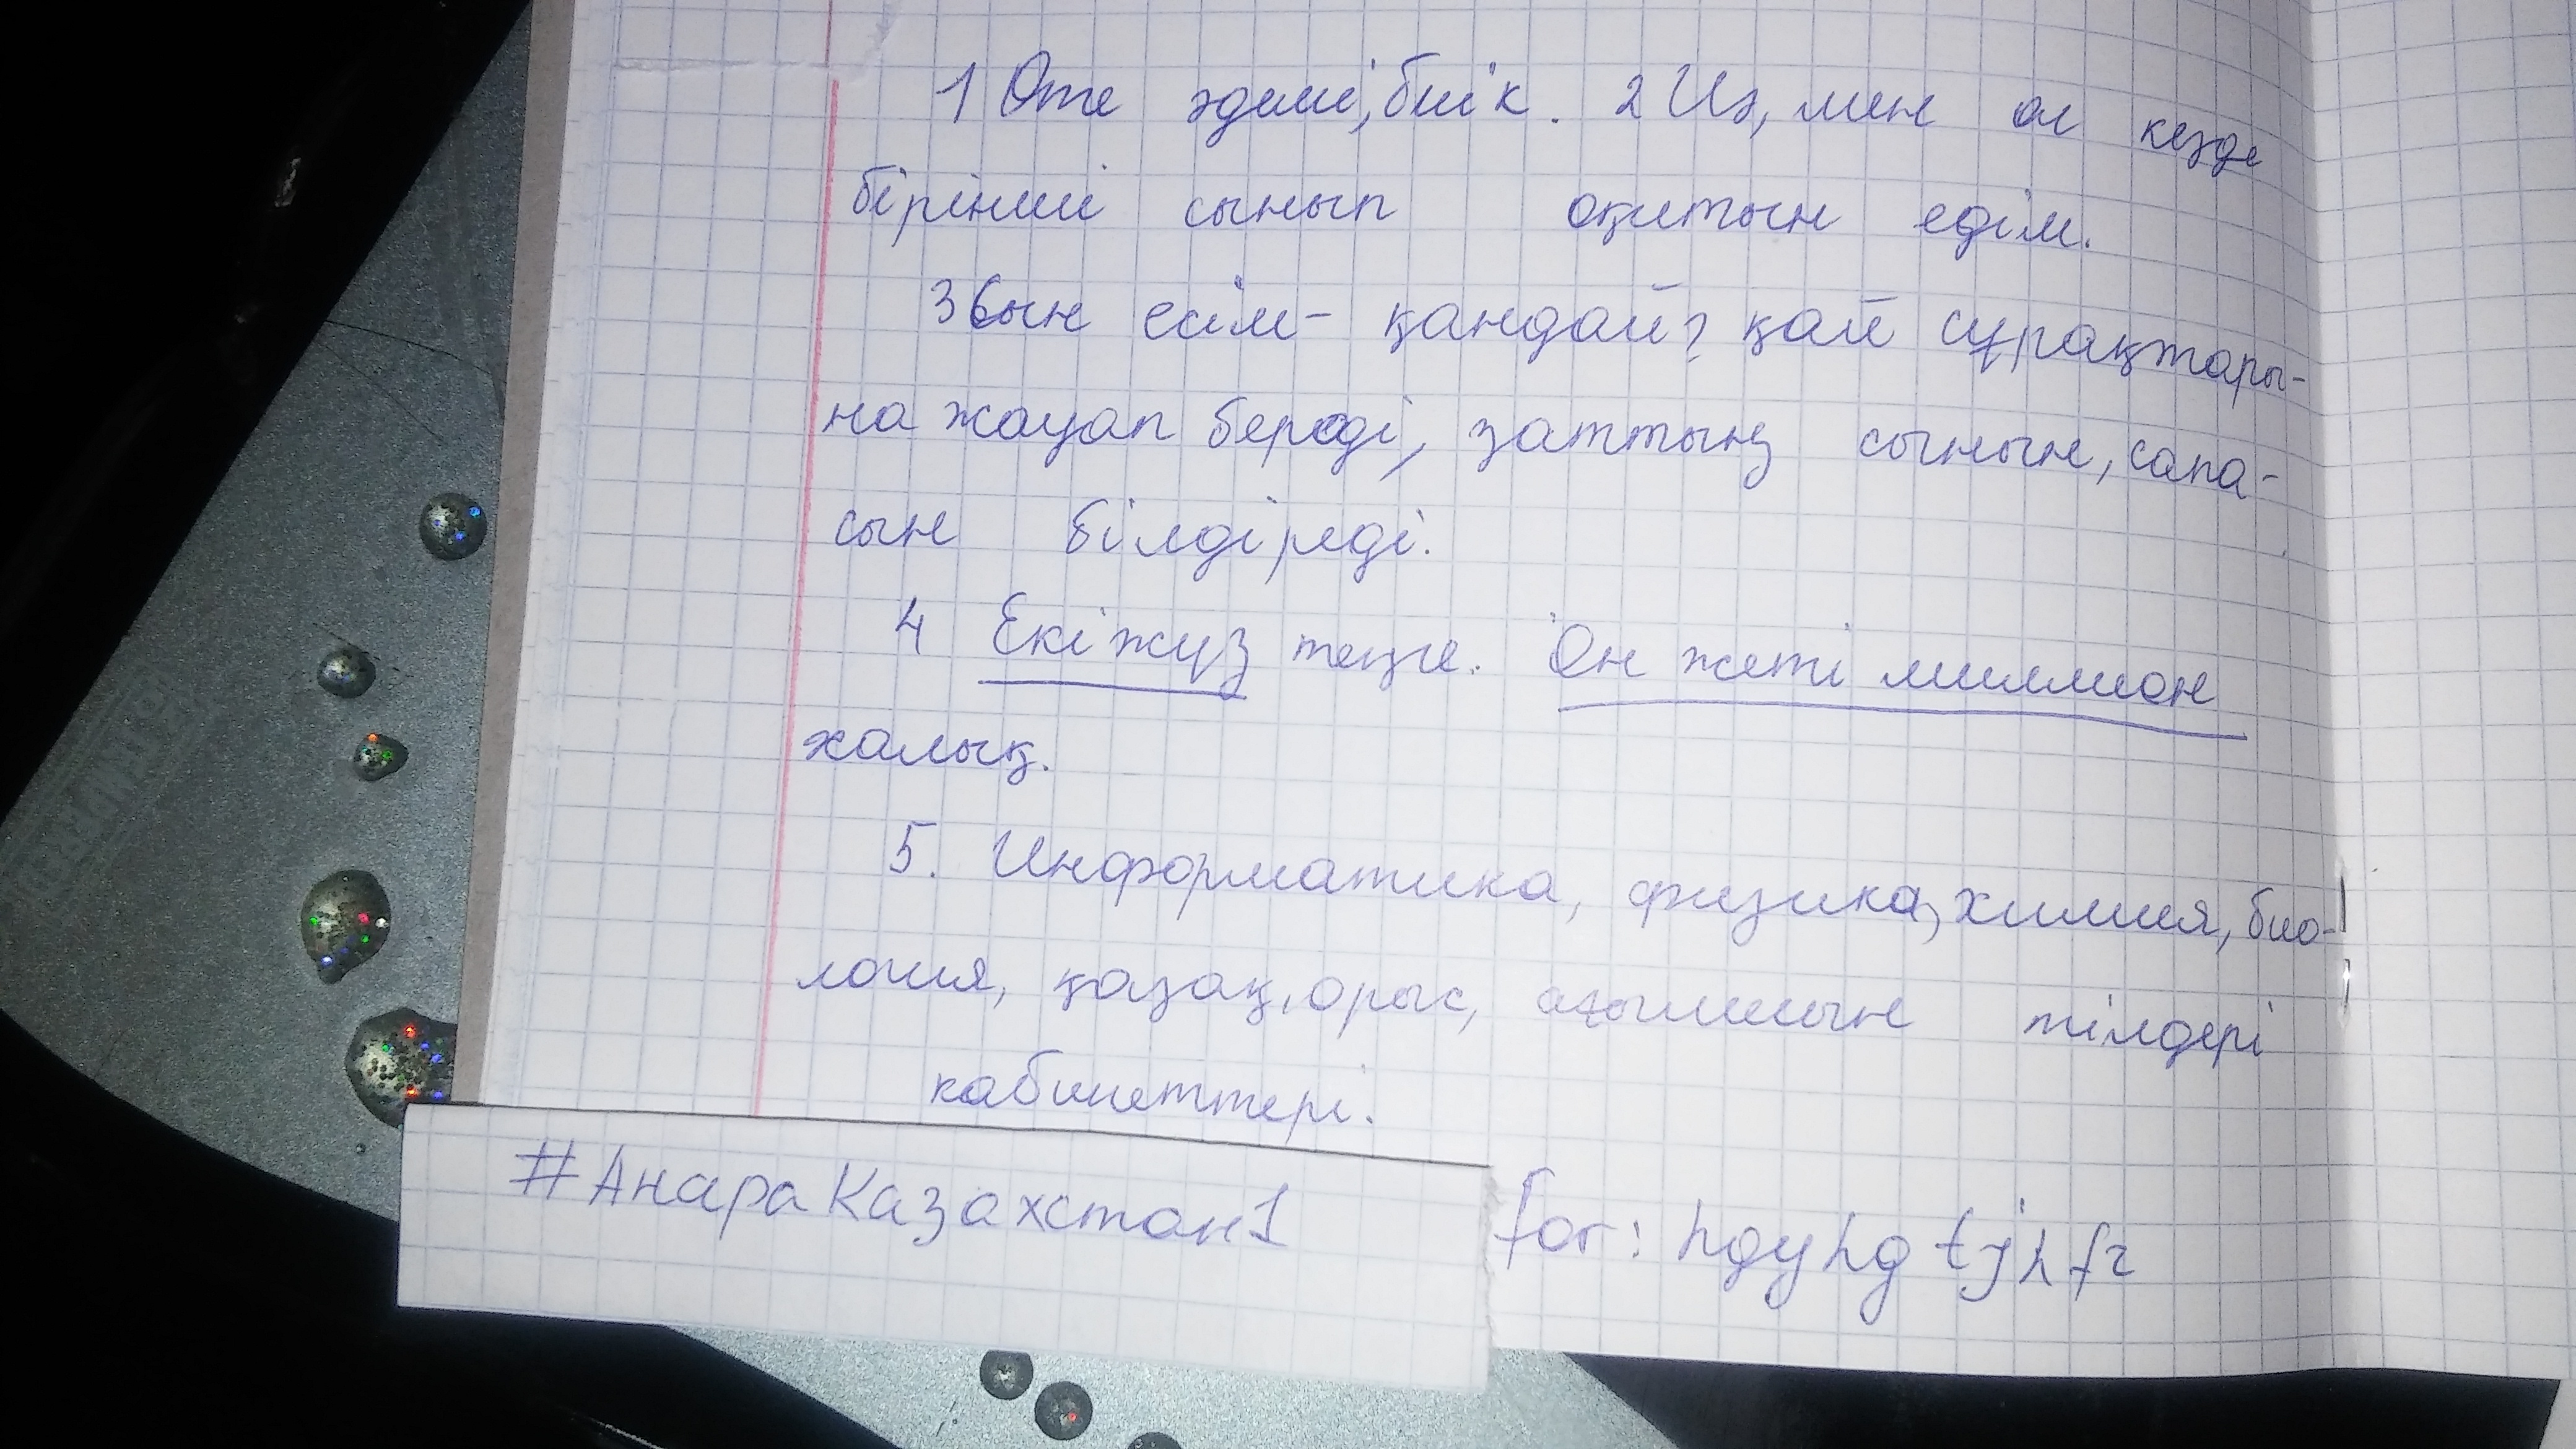 1 Өте әдемі, биік. 2 Иә, мен ол кезде
бірінші сынып оқитын едім.
3 Сын есім - қандай? қай сұрақтары-
на жауап береді, заттың сынын, сапа-
сын білдіреді.
4 Екі жүз теңге. Он жеті миллион
халық.
5. Информатика, физика, химия, био-
логия, қазақ, орыс, ағылшын тілдері
кабинеттері.
#АнараКазахстан1 for: hgyhg tjhfr